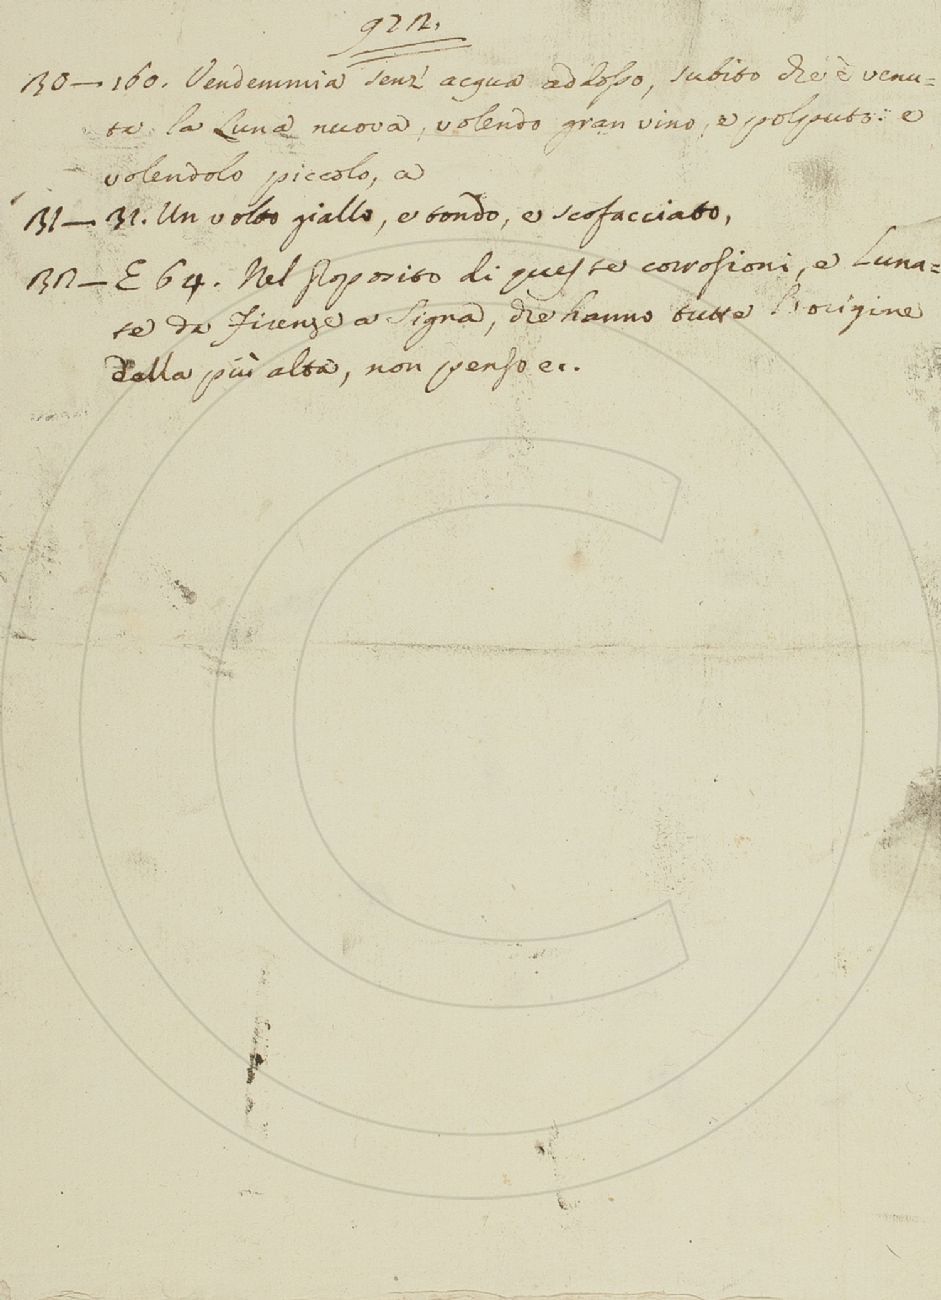 922.
130—160. Vendemmia senz' acqua addosso, subito che è venu=
ta la Luna nuova, volendo gran vino, e polputo: e
volendolo piccolo, a
131— 31. Un volto giallo, e tondo, e scofacciato,
132— E 64. Nel proposito di queste corrosioni, e Luna=
te da Firenze a Signa, che hanno tutte l'origine
dalla più alta, non penso ec.